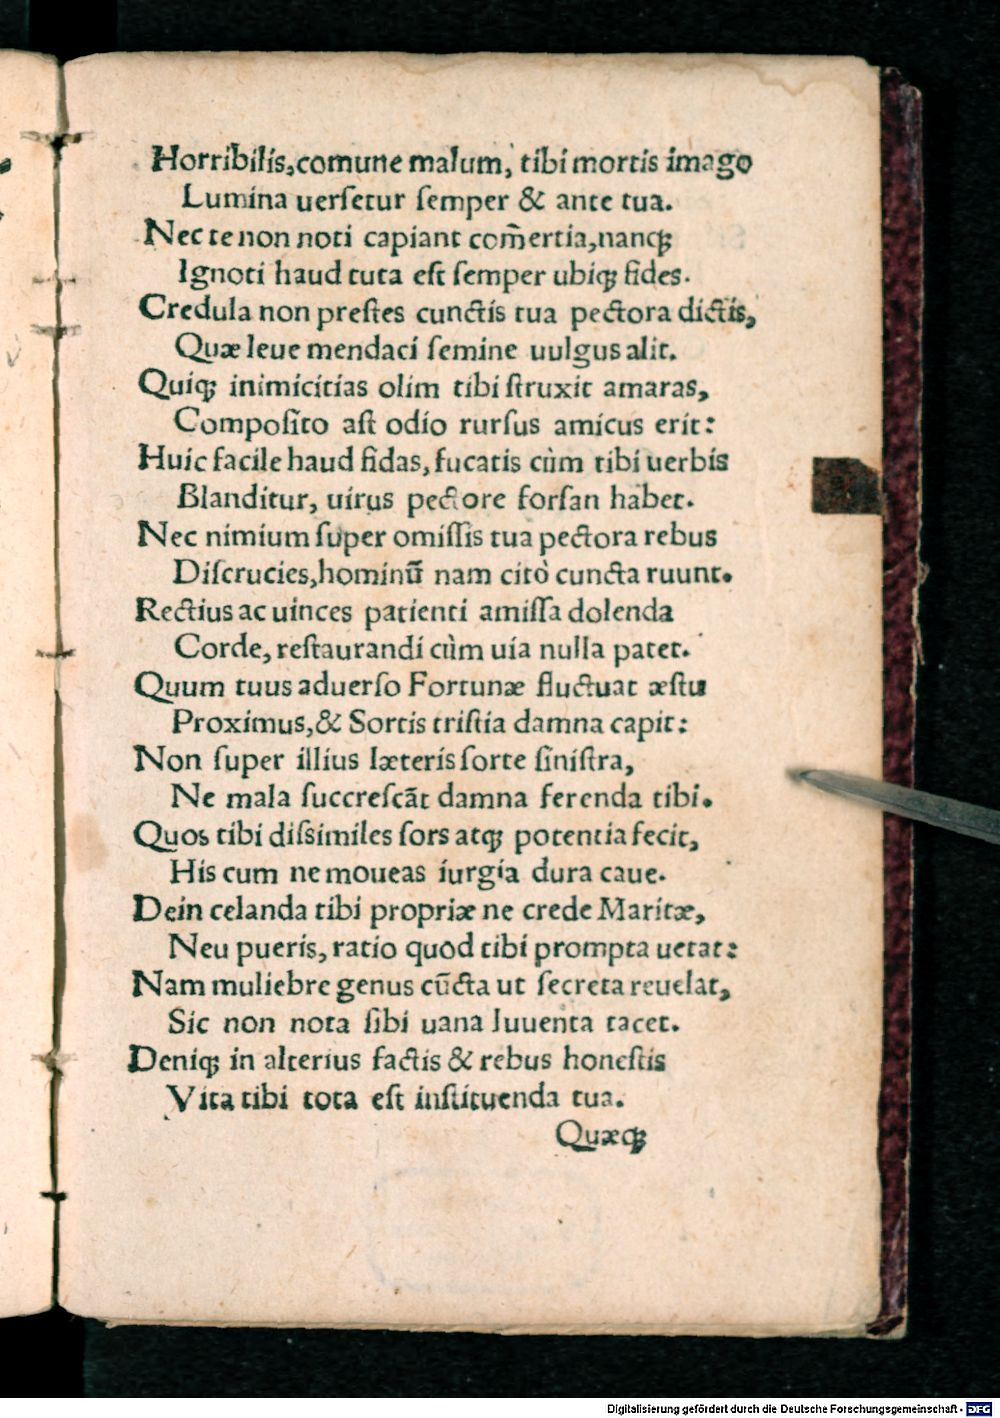 Horribilis, comune malum, tibi mortis imago
Lumina uerſetur ſemper & ante tua.
Nec te non noti capiant com̃ertia, nanqꝫ
Ignoti haud tuta eſt ſemper ubiqꝫ fides.
Credula non preſtes cunctis tua pectora dictis,
Quæ leue mendaci ſemine uulgus alit.
Quiqꝫ inimicitias olim tibi ſtruxit amaras,
Compoſito aſt odio rurſus amicus erit:
Huic facile haud fidas, fucatis cùm tibi uerbis
Blanditur, uirus pectore forſan habet.
Nec nimium ſuper omiſſis tua pectora rebus
Diſcrucies, hominū nam citò cuncta ruunt.
Rectius ac uinces patienti amiſſa dolenda
Corde, reſtaurandi cùm uia nulla patet.
Quum tuus aduerſo Fortunæ fluctuat æſtu
Proximus, & Sortis triſtia damna capit:
Non ſuper illius læteris ſorte ſiniſtra,
Ne mala ſuccreſcāt damna ferenda tibi.
Quos tibi diſsimiles ſors atqꝫ potentia fecit,
His cum ne moueas iurgia dura caue.
Dein celanda tibi propriæ ne crede Maritæ,
Neu pueris, ratio quod tibi prompta uetat:
Nam muliebre genus cūcta ut ſecreta reuelat,
Sic non nota ſibi uana Iuuenta tacet.
Deniqꝫ in alterius factis & rebus honeſtis
Vita tibi tota eſt inſtituenda tua.
Quæqꝫ
Digitalisierung gefördert durch die Deutsche Forschungsgemeinschaft - DFG